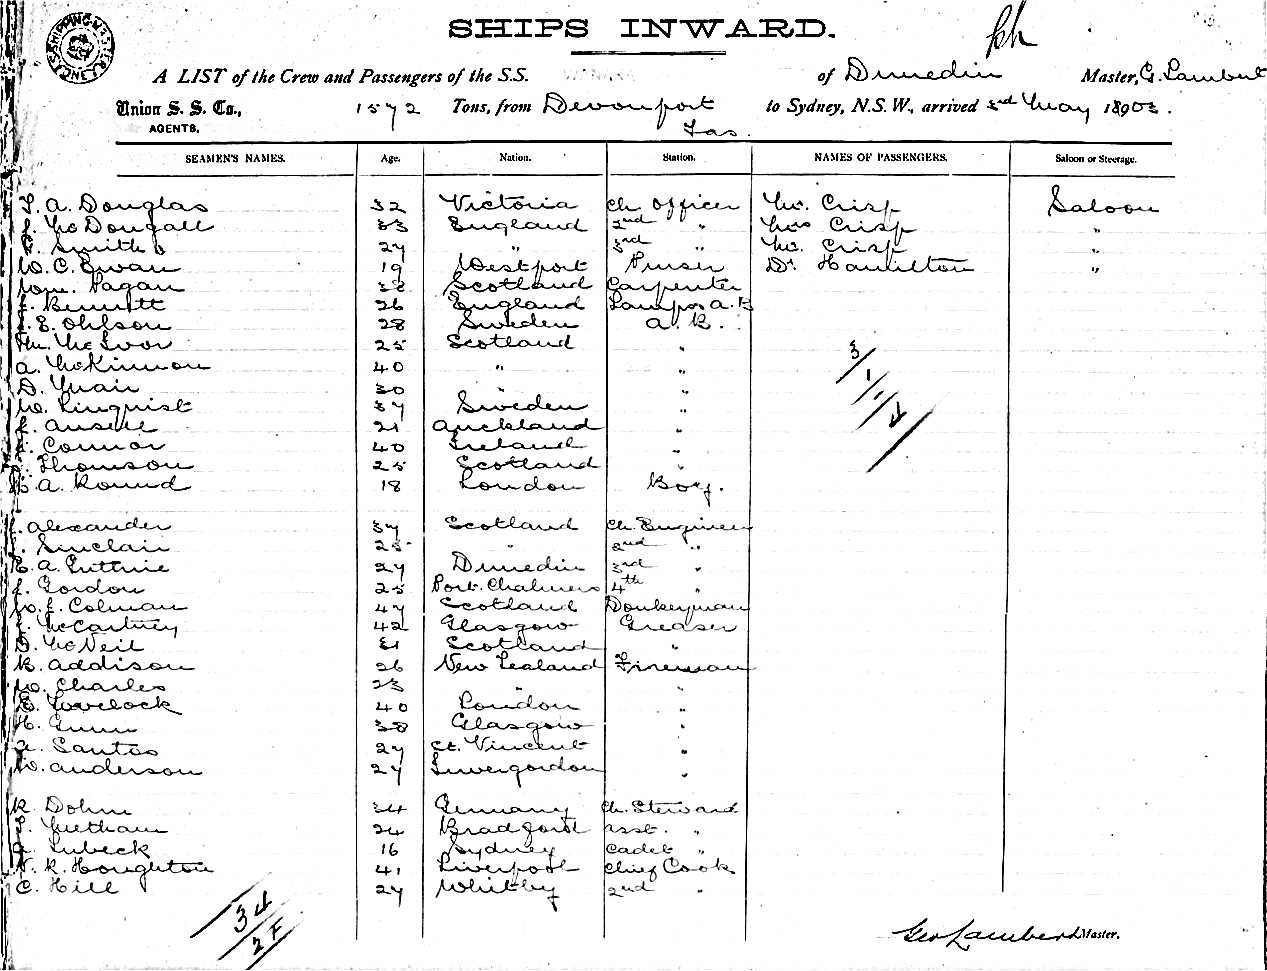 SHIPS INWARD.
A LIST of the Crew and Passengers of the S.S. of Dunedin Master, G. Lambert
Union S. S. Co., AGENTS. 1572 Tons, from Devonport Tas. to Sydney, N.S.W., arrived 3rd May 1890
SEAMEN'S NAMES. Age. Nation. Station. NAMES OF PASSENGERS. Saloon or Steerage.
T. A. Douglas 32 Victoria Ch. Officer Mr. Crisp Saloon
McDougall 33 England 2nd " Mrs Crisp "
Smith 27 " 3rd " Mr. Crisp "
W. C. Ewan 19 Westport Purser Dr. Hamilton "
Wm. Pagan 38 Scotland Carpenter
Bennett 26 England Lamps A.B
E. Ohlson 28 Sweden A.B.
McIvor 25 Scotland "
A. McKinnon 40 " "
D. Muair 30 " "
W. Linquist 37 Sweden "
Ansell 21 Auckland "
Connor 40 Ireland "
Thomson 25 Scotland "
A. Round 18 London Boy.
J. Alexander 37 Scotland Ch. Engineer
Sinclair 25 " 2nd "
E. A. Guthrie 27 Dunedin 3rd "
J. Gordon 25 Port. Chalmers 4th "
W. J. Colman 47 Scotland Donkeyman
McCartney 42 Glasgow Greaser
D. McNeil 31 Scotland "
R. Addison 26 New Zealand Fireman
W. Charles 23 " "
E. Lovelock 40 London "
H. Gunn 38 Glasgow "
A. Santos 27 St. Vincent "
W. Anderson 27 Invergordon "
R. Dohm 34 Germany Ch. Steward
Metham 24 Bradford Asst. "
A. Lubeck 16 Sydney Cadet "
R. Houghton 41 Liverpool Chief Cook
C. Hill 27 Whitby 2nd "
3/1/4
34
Geo Lambert Master.